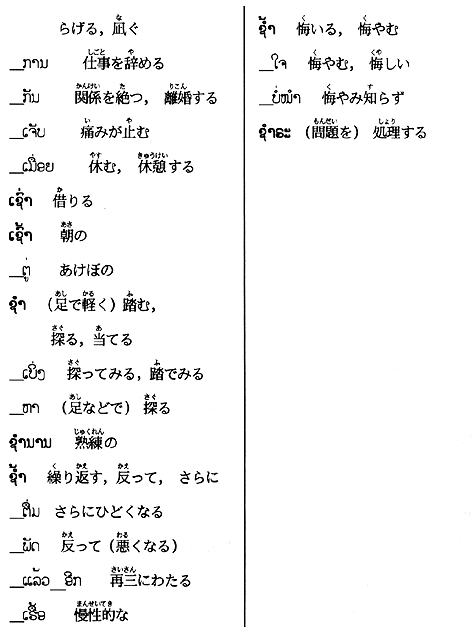 らげる，凪ぐ
__ການ 仕事を辞める
__ກັນ 関係を絶つ，離婚する
__ເຈັບ 痛みが止む
__ເມື່ອຍ 休む，休憩する
ເຊົ່າ 借りる
ເຊົ້າ 朝の
__ຕູ່ あけぼの
ຊຳ （足で軽く）踏む，
探る，当てる
__ເບິ່ງ 探ってみる，踏でみる
__ຫາ （足などで）探る
ຊຳນານ 熟練の
ຊ້ຳ 繰り返す，反って，さらに
__ຕື່ມ さらにひどくなる
__ຜັດ 反って（悪くなる）
__ແລ້ວ__ອີກ 再三にわたる
__ເຮື້ອ 慢性的な
ຊ້ຳ 悔いる，悔やむ
__ໃຈ 悔やむ，悔しい
__ບໍ່ໜຳ 悔やみ知らず
ຊຳຣະ （問題を）処理する